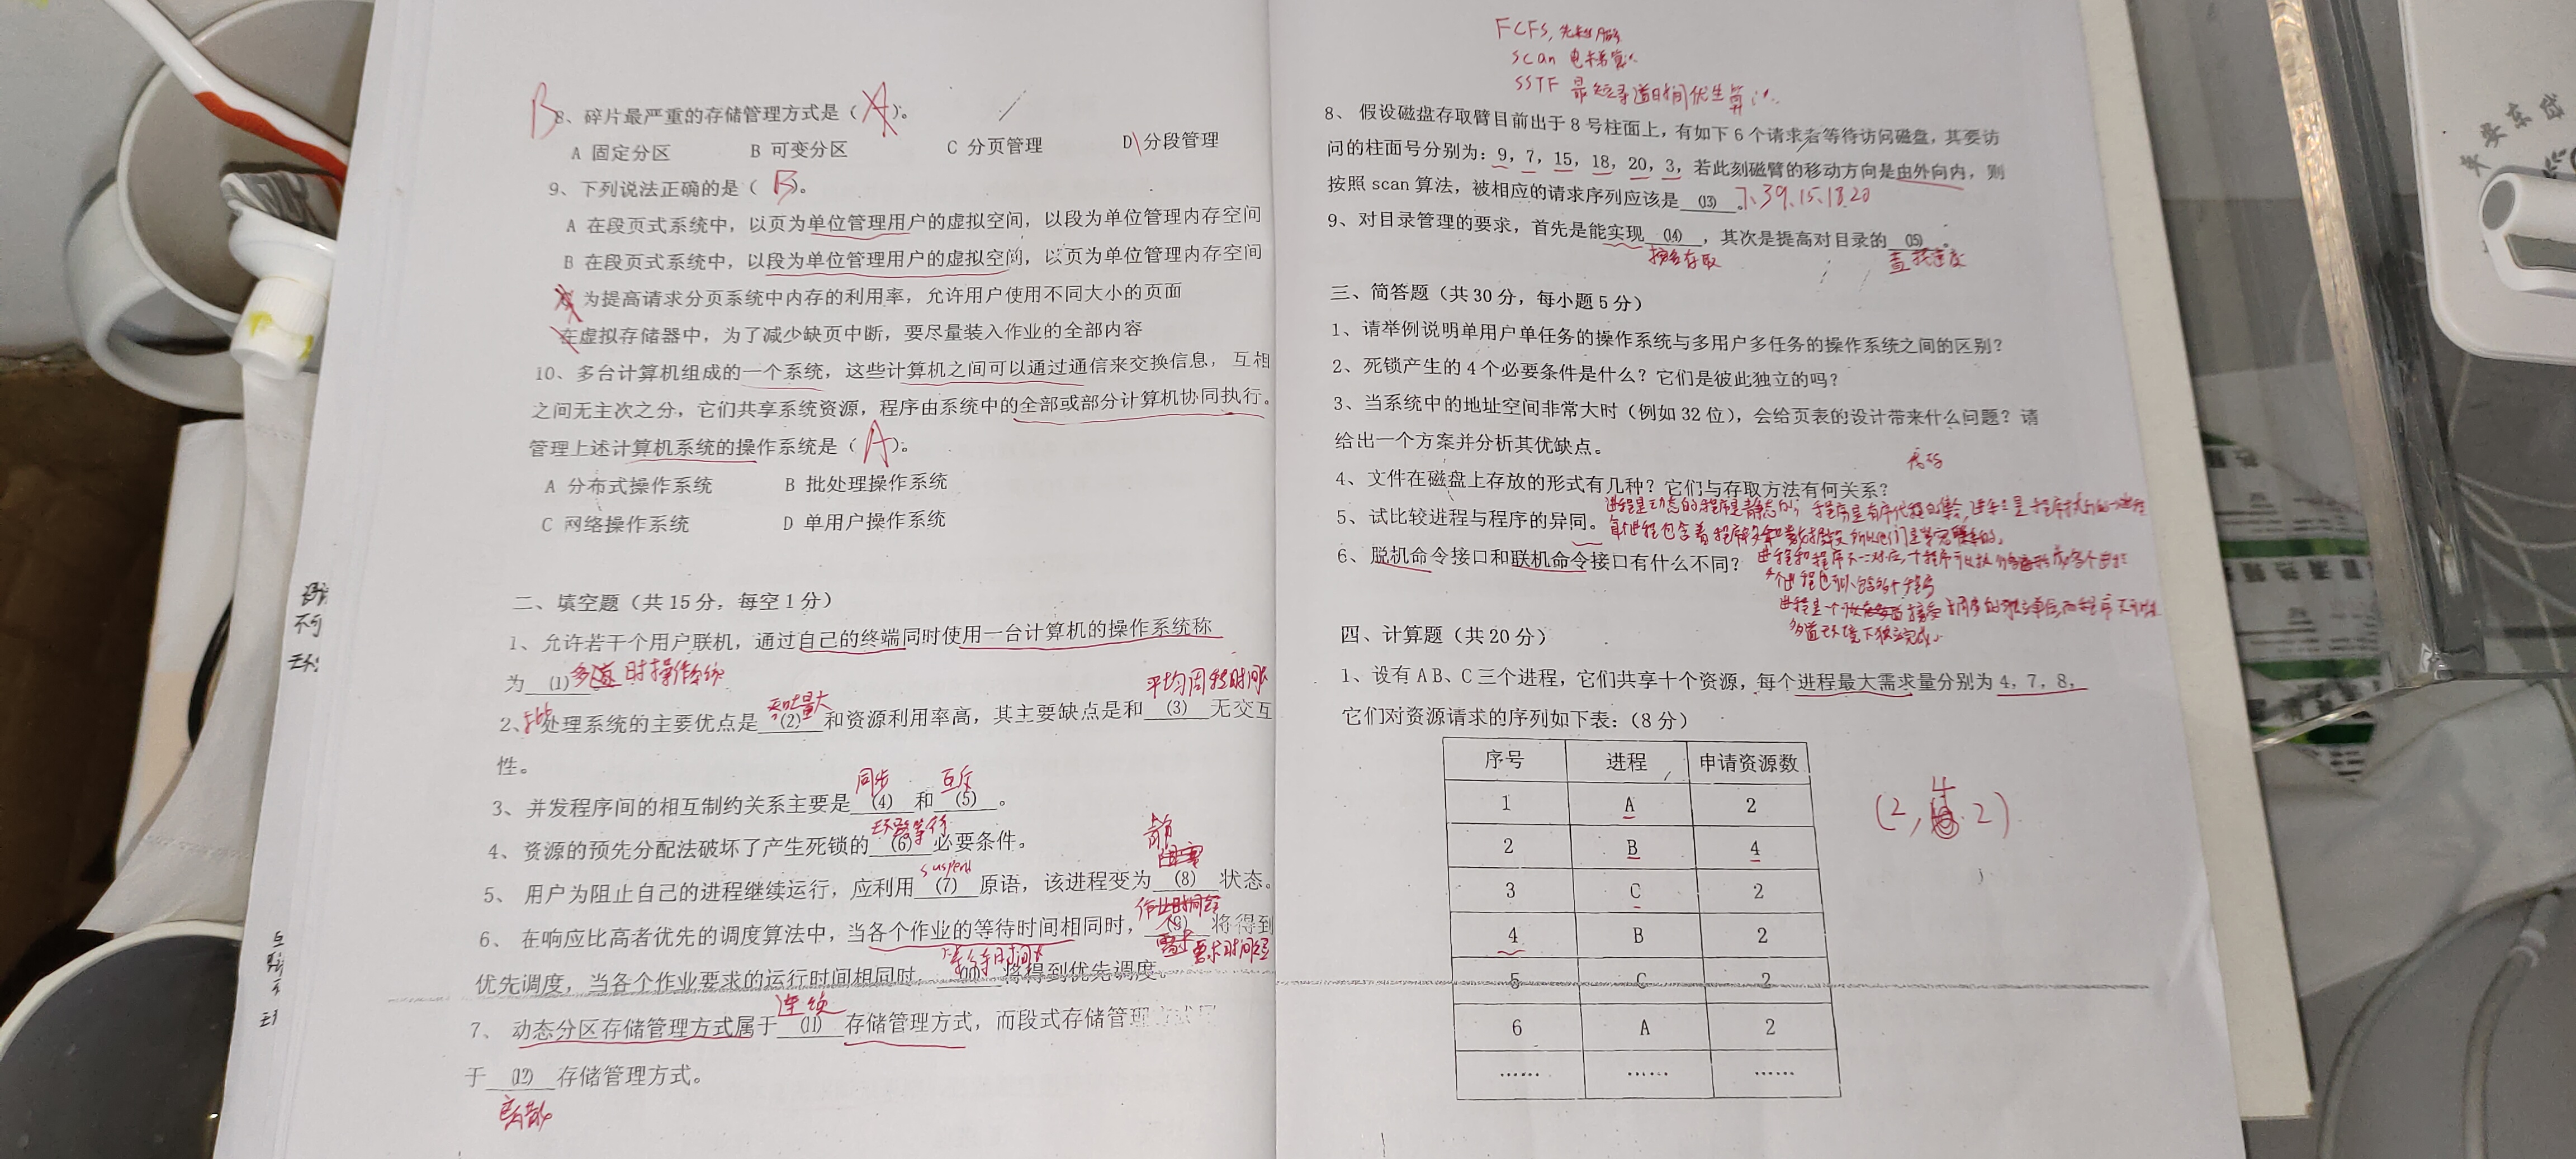 B
8、碎片最严重的存储管理方式是（ A ）。
A 固定分区 B 可变分区 C 分页管理 D 分段管理
9、下列说法正确的是（ B ）。
A 在段页式系统中，以页为单位管理用户的虚拟空间，以段为单位管理内存空间
B 在段页式系统中，以段为单位管理用户的虚拟空间，以页为单位管理内存空间
为提高请求分页系统中内存的利用率，允许用户使用不同大小的页面
在虚拟存储器中，为了减少缺页中断，要尽量装入作业的全部内容
10、多台计算机组成的一个系统，这些计算机之间可以通过通信来交换信息，互相
之间无主次之分，它们共享系统资源，程序由系统中的全部或部分计算机协同执行。
管理上述计算机系统的操作系统是（ A ）。
A 分布式操作系统 B 批处理操作系统
C 网络操作系统 D 单用户操作系统
二、填空题（共15分，每空1分）
1、允许若干个用户联机，通过自己的终端同时使用一台计算机的操作系统称
为 (1) 多道 时操作系统
平均周转时间长
2、批处理系统的主要优点是 (2) 和资源利用率高，其主要缺点是和 (3) 无交互
性。
同步 互斥
3、并发程序间的相互制约关系主要是 (4) 和 (5) 。
环路等待
4、资源的预先分配法破坏了产生死锁的 (6) 必要条件。
suspend
5、用户为阻止自己的进程继续运行，应利用 (7) 原语，该进程变为 (8) 状态。
6、在响应比高者优先的调度算法中，当各个作业的等待时间相同时， (9) 将得到
要求时间短
等待时间长
优先调度，当各个作业要求的运行时间相同时， (10) 将得到优先调度。
连续
7、动态分区存储管理方式属于 (11) 存储管理方式，而段式存储管理
于 (12) 存储管理方式。
离散
FCFS，先来先服务
scan 电梯算法
SSTF 最短寻道时间优先算法
8、假设磁盘存取臂目前出于8号柱面上，有如下6个请求者等待访问磁盘，其要访
问的柱面号分别为：9，7，15，18，20，3，若此刻磁臂的移动方向是由外向内，则
按照scan算法，被相应的请求序列应该是 (13) 。7、3 9、15、18 20
9、对目录管理的要求，首先是能实现 (14) ，其次是提高对目录的 (15) 。
按名存取
三、简答题（共30分，每小题5分）
1、请举例说明单用户单任务的操作系统与多用户多任务的操作系统之间的区别？
2、死锁产生的4个必要条件是什么？它们是彼此独立的吗？
3、当系统中的地址空间非常大时（例如32位），会给页表的设计带来什么问题？请
给出一个方案并分析其优缺点。
4、文件在磁盘上存放的形式有几种？它们与存取方法有何关系？
进程是动态的程序是静态的
5、试比较进程与程序的异同。
6、脱机命令接口和联机命令接口有什么不同？
四、计算题（共20分）
1、设有A B、C三个进程，它们共享十个资源，每个进程最大需求量分别为4，7，8，
它们对资源请求的序列如下表：（8分）
序号 进程 申请资源数
1 A 2
2 B 4
3 C 2
4 B 2
5 C 2
6 A 2
…… …… ……
(2, 4, 2)